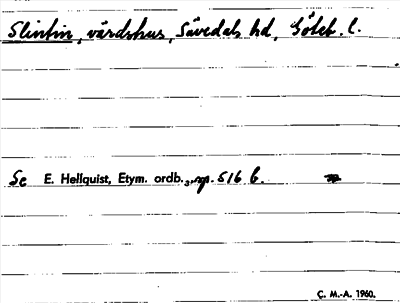 Slintin, värdshus, Sävedals hd, Göteb. l.
Se E. Hellquist, Etym. ordb., sp. 516 b.
C. M.-A. 1960.